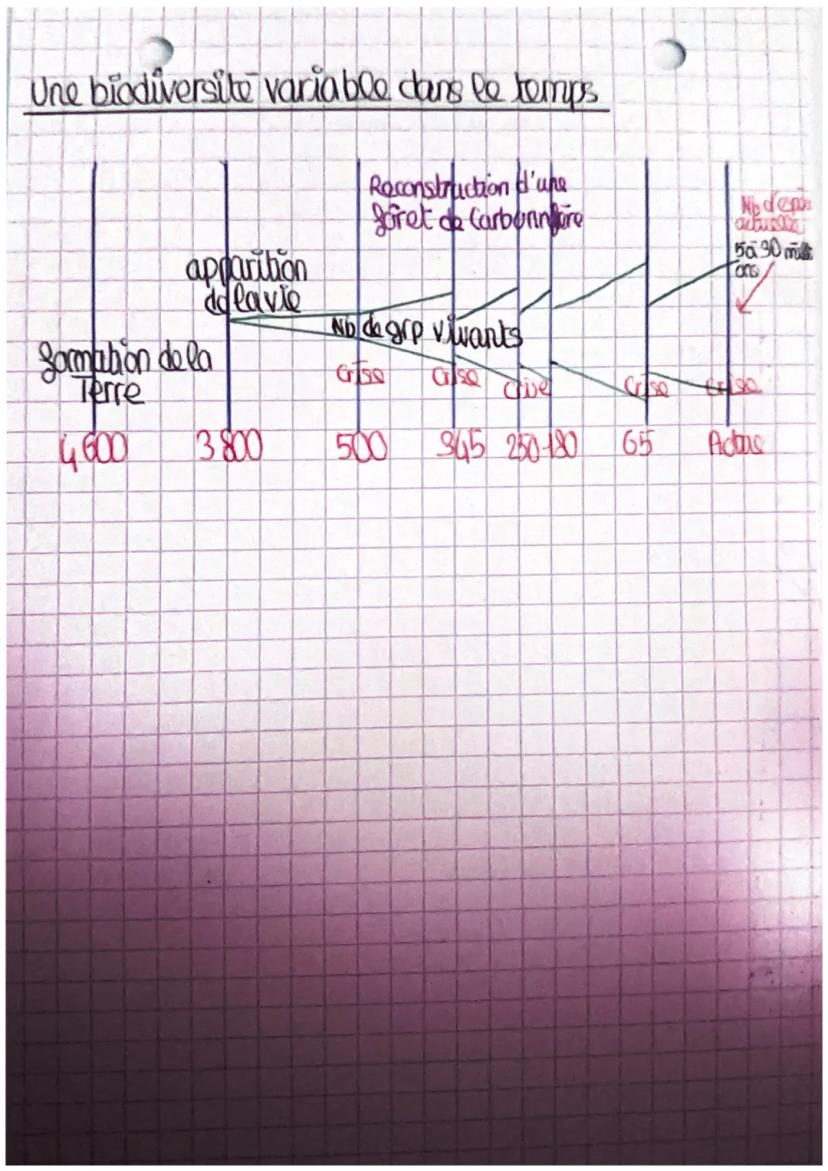 Une biodiversité variable dans le temps
Reconstruction d'une
fôret de Carbonnifère
Nb d'esp
actuelle
5 à 30 mill
ans
apparition
de la vie
Nb de grp vivants
formation de la
Terre
Crise Crise Crise Crise Crise
4 600 3 800 500 345 250 180 65 Actus